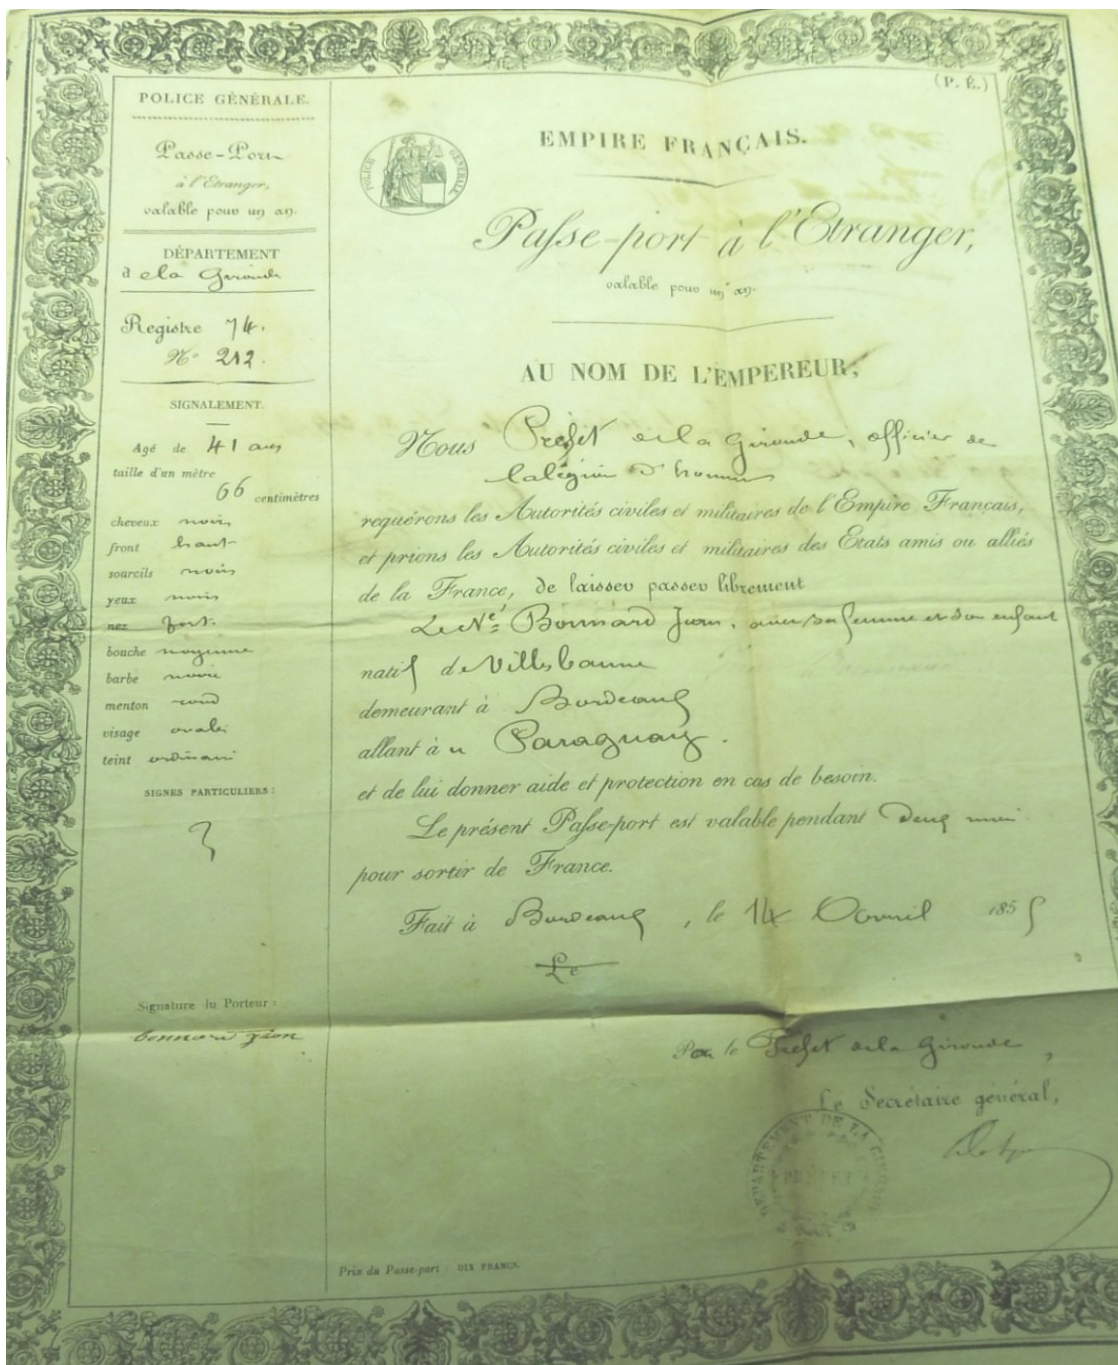 POLICE GÉNÉRALE.
Passe-Port
à l'Etranger,
valable pour un an.
DÉPARTEMENT
de la Gironde
Registre 74.
N° 212.
SIGNALEMENT.
Agé de 41 ans
taille d'un mètre
66 centimètres
cheveux noirs
front haut
sourcils noirs
yeux noirs
nez fort
bouche moyenne
barbe noire
menton rond
visage ovale
teint ordinaire
SIGNES PARTICULIERS :
Signature du Porteur :
bonnard jean
(P. É.)
POLICE GÉNÉRALE
EMPIRE FRANÇAIS.
Passe-port à l'Etranger,
valable pour un an.
AU NOM DE L'EMPEREUR,
Nous Préfet de la Gironde, officier de
la légion d'honneur
requérons les Autorités civiles et militaires de l'Empire Français,
et prions les Autorités civiles et militaires des Etats amis ou alliés
de la France, de laisser passer librement
Le Né Bonnard Jean, avec sa femme et son enfant
natif de Villeurbanne
demeurant à Bordeaux
allant au Paraguay.
et de lui donner aide et protection en cas de besoin.
Le présent Passe-port est valable pendant deux mois
pour sortir de France.
Fait à Bordeaux, le 14 Avril 1855
Le
Pour le Préfet de la Gironde,
Le Secrétaire général,
DÉPARTEMENT DE LA GIRONDE
Prix du Passe-port : DIX FRANCS.